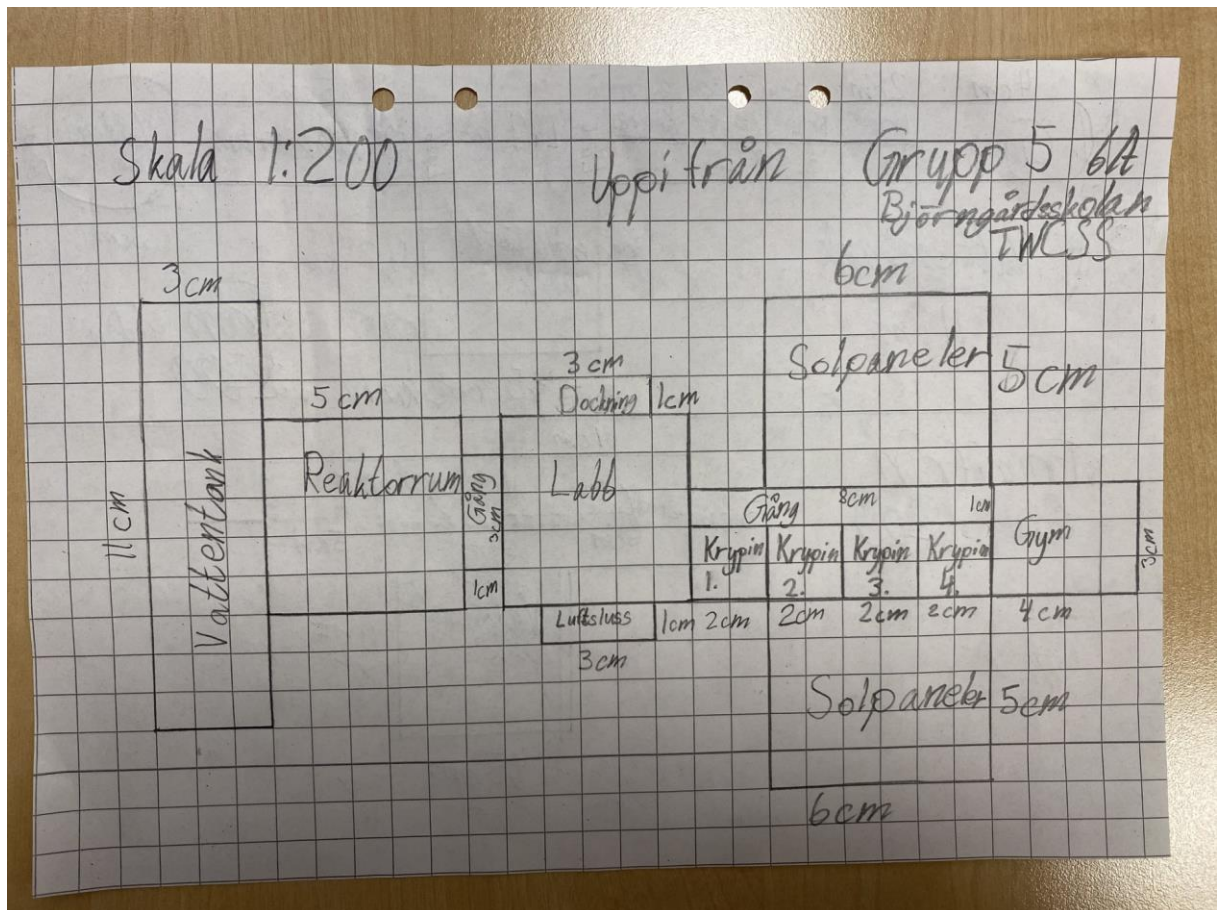 Skala 1:200
Uppifrån
Grupp 5 6A
Björngårdsskolan
TWCSS
3 cm
6cm
Solpaneler
5 cm
3 cm
Dockning 1cm
5 cm
11 cm
Vattentank
Reaktorrum
Gång
3cm
1cm
Labb
Gång 8cm 1cm
Krypin
1.
Krypin
2.
Krypin
3.
Krypin
4.
Gym
3cm
Luftsluss 1cm
3cm
2cm 2cm 2cm 2cm 4cm
Solpaneler 5cm
6cm